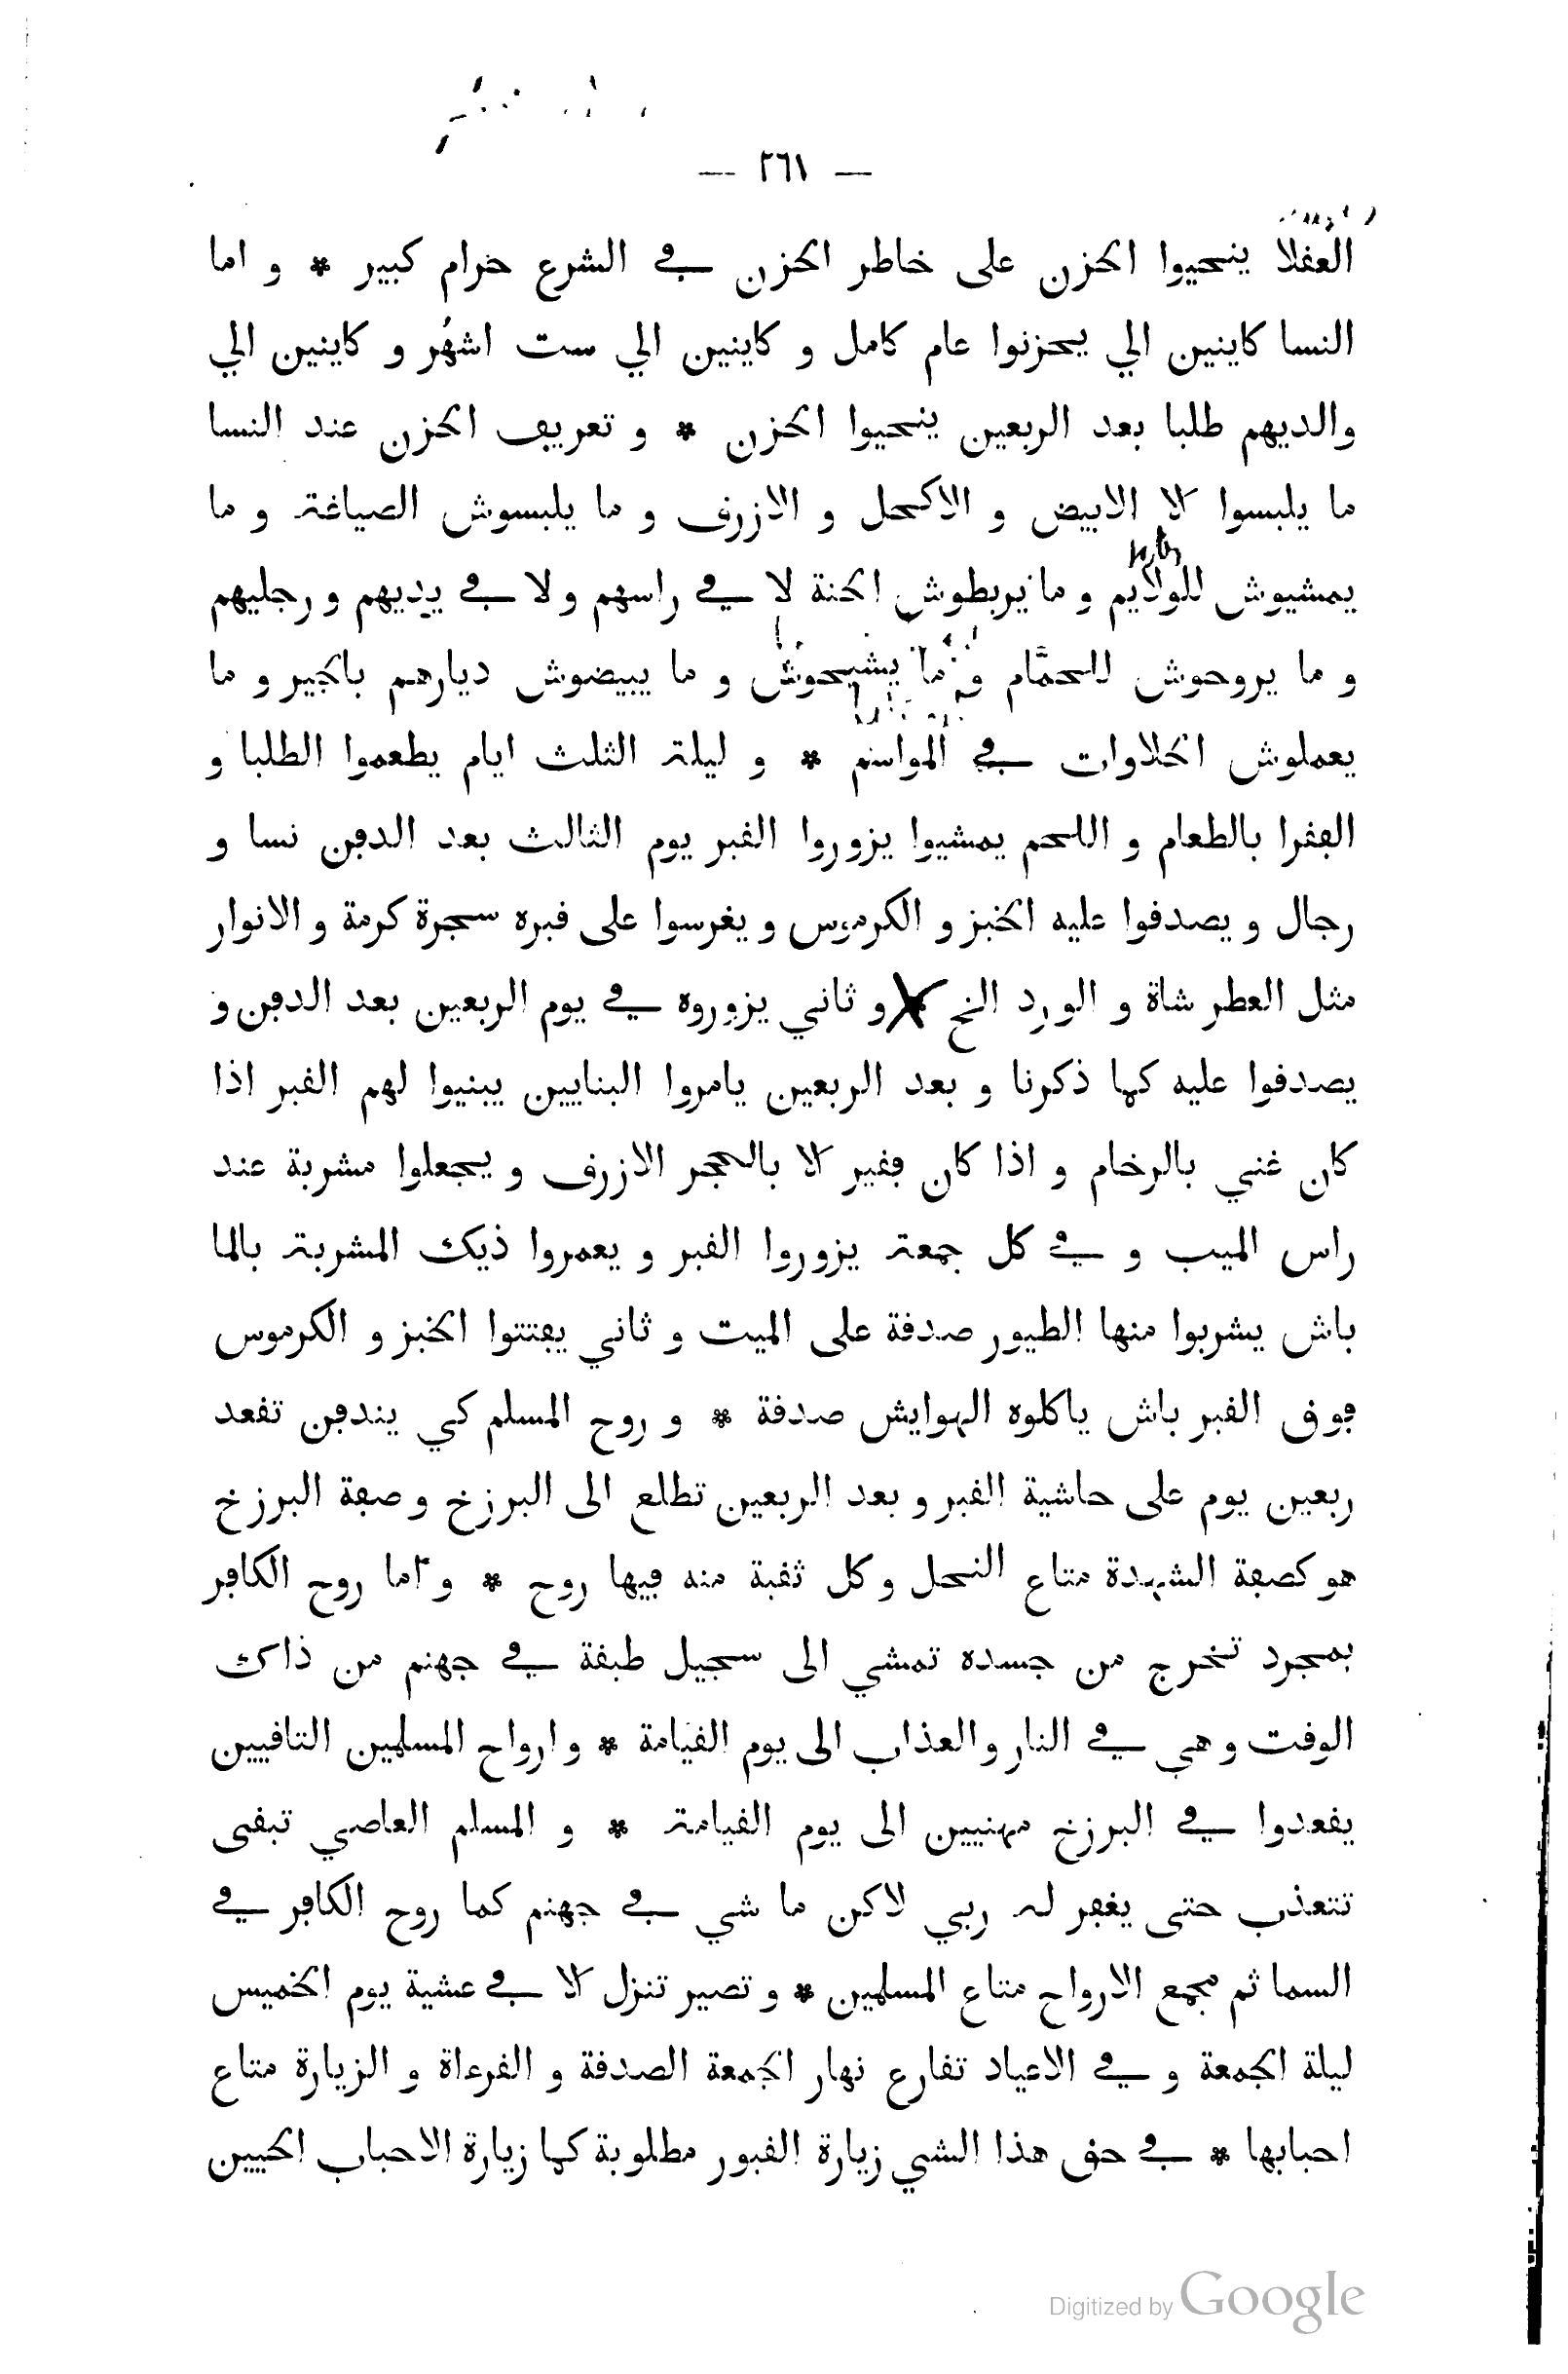 — ٢٦١ —
العقلا ينحيوا الحزن على خاطر الحزن في الشرع حرام كبير * و اما
النسا كاينين الي يحزنوا عام كامل و كاينين الي ست اشهر و كاينين الي
والديهم طلبا بعد الربعين ينحيوا الحزن * و تعريف الحزن عند النسا
ما يلبسوا كلا الابيض و الاكحل و الازرق و ما يلبسوش الصياغة و ما
يمشيوش للولايم و ما يربطوش الحنة لا في راسهم ولا في يديهم و رجليهم
و ما يروحوش للحمّام و ما يشيحوش و ما يبيضوش ديارهم بالجير و ما
يعملوش الحلاوات في المواسم * و ليلة الثلث ايام يطعموا الطلبا و
الفقرا بالطعام و اللحم يمشيوا يزوروا القبر يوم الثالث بعد الدفن نسا و
رجال و يصدقوا عليه الخبز و الكرموس و يغرسوا على قبره سجرة كرمة و الانوار
مثل العطر شاة و الورد الخ * و ثاني يزوروه في يوم الربعين بعد الدفن و
يصدقوا عليه كما ذكرنا و بعد الربعين يامروا البنايين يبنيوا لهم القبر اذا
كان غني بالرخام و اذا كان فقير كلا بالحجر الازرق و يجعلوا مشربة عند
راس الميت و في كل جمعة يزوروا القبر و يعمروا ذيك المشربة بالما
باش يشربوا منها الطيور صدقة على الميت و ثاني يفتتوا الخبز و الكرموس
فوق القبر باش ياكلوه الهوايش صدقة * و روح المسلم كي يندفن تقعد
ربعين يوم على حاشية القبر و بعد الربعين تطلع الى البرزخ و صفة البرزخ
هو كصفة الشهدة متاع النحل و كل ثقبة منه فيها روح * و اما روح الكافر
بمجرد تخرج من جسده تمشي الى سجيل طبقة في جهنم من ذاك
الوقت و هي في النار والعذاب الى يوم القيامة * و ارواح المسلمين التاقيين
يقعدوا في البرزخ مهنيين الى يوم القيامة * و المسلم العاصي تبقى
تتعذب حتى يغفر له ربي لاكن ما شي في جهنم كما روح الكافر في
السما ثم مجمع الارواح متاع المسلمين * و تصير تنزل كلا في عشية يوم الخميس
ليلة الجمعة و في الاعياد تقارع نهار الجمعة الصدقة و القرءاة و الزيارة متاع
احبابها * في حق هذا الشي زيارة القبور مطلوبة كما زيارة الاحباب الحيين
Digitized by Google